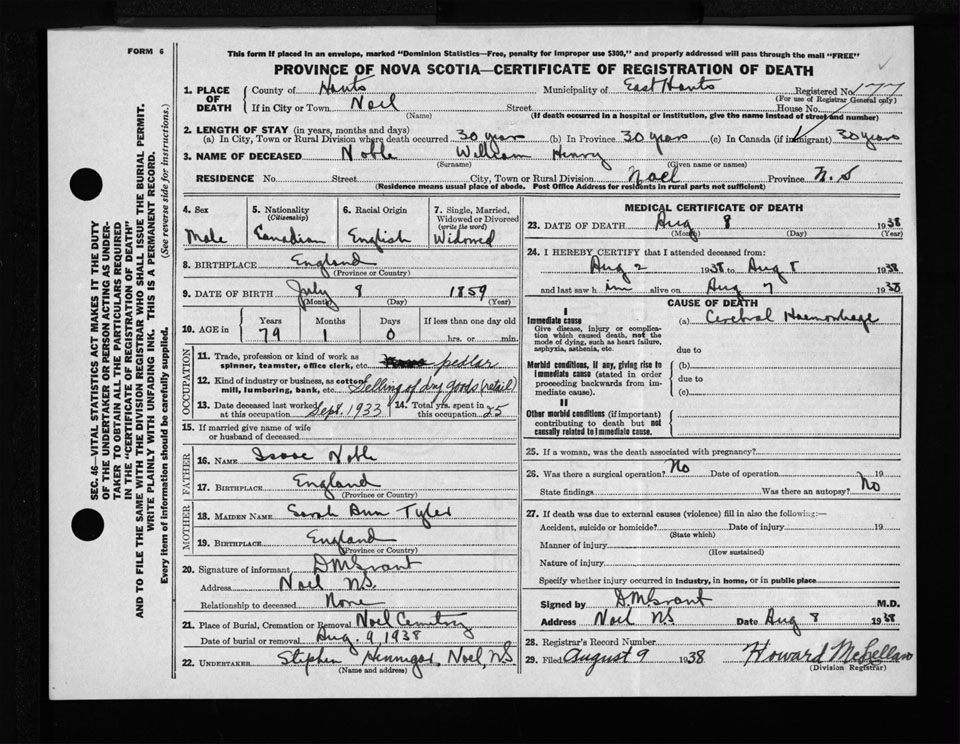 FORM 6
This form if placed in an envelope, marked "Dominion Statistics—Free, penalty for improper use $300," and properly addressed will pass through the mail "FREE"
PROVINCE OF NOVA SCOTIA—CERTIFICATE OF REGISTRATION OF DEATH
SEC. 46—VITAL STATISTICS ACT MAKES IT THE DUTY
OF THE UNDERTAKER OR PERSON ACTING AS UNDER-
TAKER TO OBTAIN ALL THE PARTICULARS REQUIRED
IN THE "CERTIFICATE OF REGISTRATION OF DEATH"
AND TO FILE THE SAME WITH THE DIVISION REGISTRAR WHO SHALL ISSUE THE BURIAL PERMIT.
WRITE PLAINLY WITH UNFADING INK. THIS IS A PERMANENT RECORD.
Every item of information should be carefully supplied. (See reverse side for instructions.)
1. PLACE OF DEATH County of Hants Municipality of East Hants Registered No. 177
(For use of Registrar General only)
If in City or Town Noel Street House No.
(Name) (If death occurred in a hospital or institution, give the name instead of street and number)
2. LENGTH OF STAY (in years, months and days)
(a) In City, Town or Rural Division where death occurred 30 years (b) In Province 30 years (c) In Canada (if immigrant) 30 years
3. NAME OF DECEASED Noble William Henry
(Surname) (Given name or names)
RESIDENCE No. Street City, Town or Rural Division Noel Province N.S
(Residence means usual place of abode. Post Office Address for residents in rural parts not sufficient)
4. Sex 5. Nationality (Citizenship) 6. Racial Origin 7. Single, Married, Widowed or Divorced (write the word)
Male Canadian English Widowed
8. BIRTHPLACE England
(Province or Country)
9. DATE OF BIRTH July 8 1859
(Month) (Day) (Year)
10. AGE in Years Months Days If less than one day old
79 1 0 hrs. or min.
OCCUPATION
11. Trade, profession or kind of work as
spinner, teamster, office clerk, etc. pedlar
12. Kind of industry or business, as cotton
mill, lumbering, bank, etc. Selling of dry goods (retail)
13. Date deceased last worked at this occupation Sept. 1933 14. Total yrs. spent in this occupation 25
15. If married give name of wife
or husband of deceased
FATHER
16. NAME Isaac Noble
17. BIRTHPLACE England
(Province or Country)
MOTHER
18. MAIDEN NAME Sarah Ann Tyler
19. BIRTHPLACE England
(Province or Country)
20. Signature of informant D M Grant
Address Noel NS.
Relationship to deceased None
21. Place of Burial, Cremation or Removal Noel Cemetry
Date of burial or removal Aug. 9, 1938
22. UNDERTAKER Stephen Hennigar, Noel, NS
(Name and address)
MEDICAL CERTIFICATE OF DEATH
23. DATE OF DEATH Aug 8 1938
(Month) (Day) (Year)
24. I HEREBY CERTIFY that I attended deceased from:
Aug 2 1938 to Aug 8 1938
and last saw him alive on Aug 7 1938
CAUSE OF DEATH
I
Immediate cause (a) Cerebral Haemorhage
Give disease, injury or complica-
tion which caused death, not the
mode of dying, such as heart failure,
asphyxia, asthenia, etc. due to
Morbid conditions, if any, giving rise to (b)
immediate cause (stated in order due to
proceeding backwards from im-
mediate cause). (c)
II
Other morbid conditions (if important)
contributing to death but not
causally related to immediate cause.
25. If a woman, was the death associated with pregnancy?
26. Was there a surgical operation? No Date of operation 19
State findings Was there an autopsy? No
27. If death was due to external causes (violence) fill in also the following:—
Accident, suicide or homicide? Date of injury 19
(State which)
Manner of injury
(How sustained)
Nature of injury
Specify whether injury occurred in industry, in home, or in public place
Signed by D. M Grant M.D.
Address Noel NS Date Aug 8 1938
28. Registrar's Record Number
29. Filed August 9 1938 Howard McLellan
(Division Registrar)